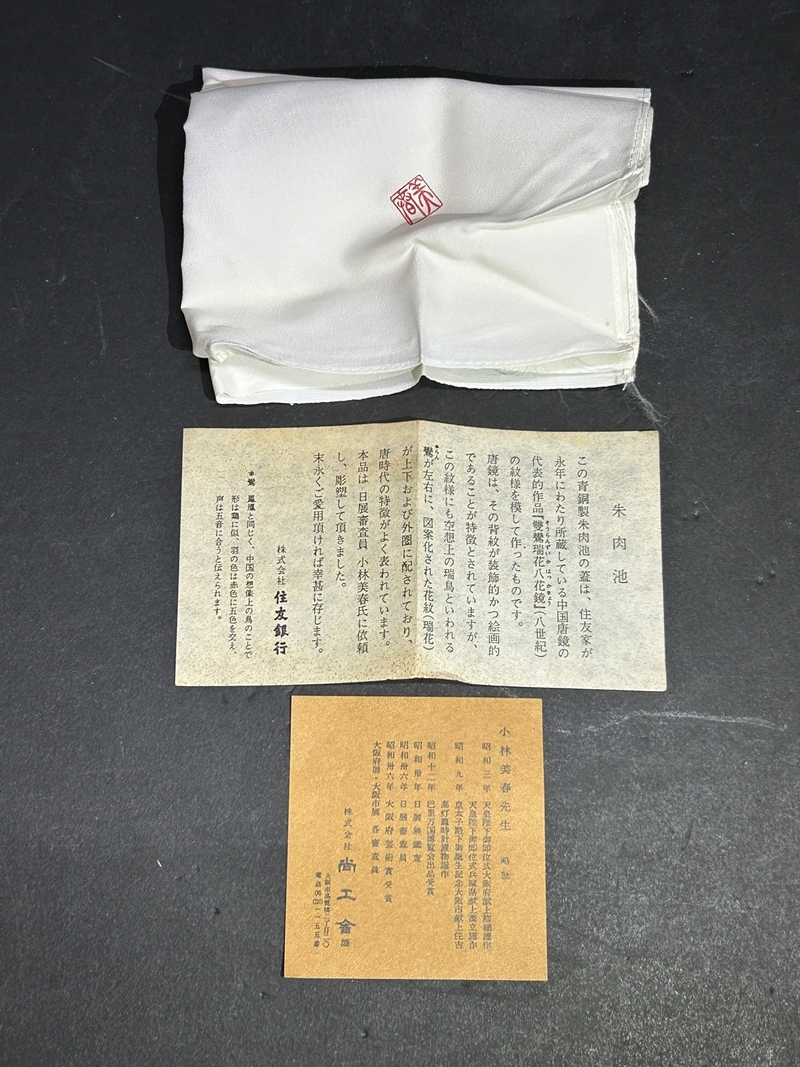 美春
朱肉池
この青銅製朱肉池の蓋は、住友家が
永年にわたり所蔵している中国唐鏡の
代表的作品『雙鸞瑞花八花鏡』(八世紀)
そうらんずいか はっかきょう
の紋様を模して作ったものです。
唐鏡は、その背紋が装飾的かつ絵画的
であることが特徴とされていますが、
この紋様にも空想上の瑞鳥といわれる
鸞が左右に、図案化された花紋(瑞花)
*らん
が上下および外圏に配されており、
唐時代の特徴がよく表われています。
本品は、日展審査員 小林美春氏に依頼
し、彫塑して頂きました。
末永くご愛用頂ければ幸甚に存じます。
株式会社 住友銀行
*鸞 鳳凰と同じく、中国の想像上の鳥のことで
形は鶏に似、羽の色は赤色に五色を交え、
声は五音に合うと伝えられます。
小林美春先生 略歴
昭和三年 天皇陛下御即位式大阪府献上
天皇陛下御即位式兵庫県献上
昭和九年 皇太子殿下御誕生記念大阪市献上住吉
高灯籠時計置物謹作
昭和十二年 巴里万国博覧会出品受賞
昭和卅年 日展無鑑査
昭和卅六年 日展審査員
昭和卅六年 大阪府芸術賞受賞
大阪府展・大阪市展 各審査員
株式会社 尚工舎